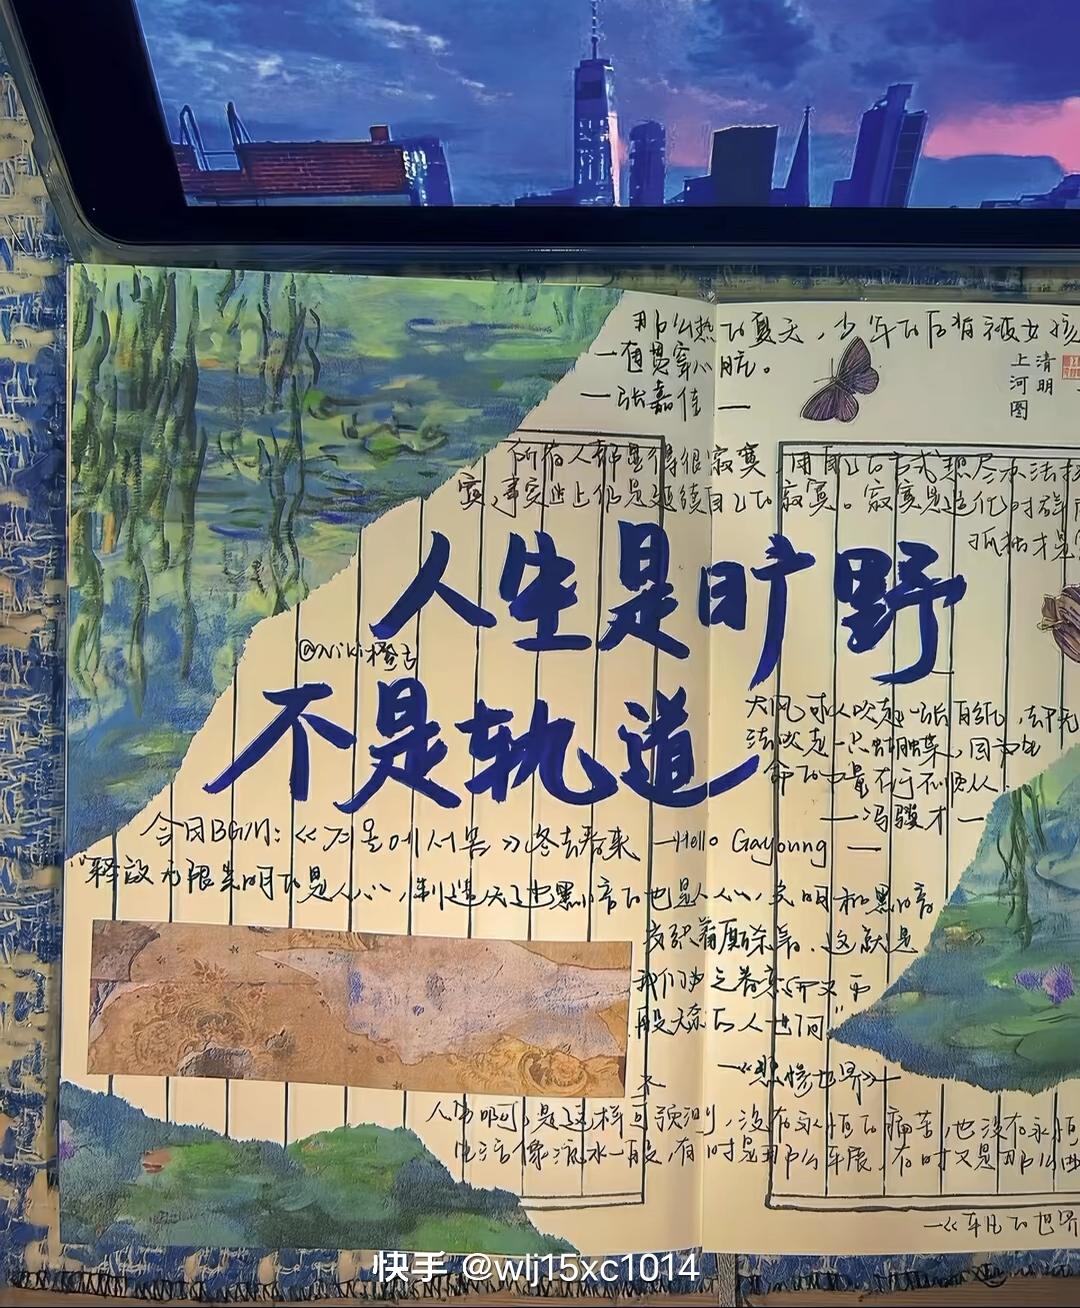 那么热的夏天，少年的后背被女孩
一直贯穿心脏。
—张嘉佳—
清明
上河图
所有人都显得很寂寞，用自己的方式想尽办法排
寞，事实上仍是延续自己的寂寞。寂寞是造化对群
孤独才是
人生是旷野
@Niki橙舌
不是轨道
大风可以吹起一张白纸，却无
法吹走一只蝴蝶，因为生
命的力量在于不顺从。
—冯骥才—
今日BGM：《겨울에서봄》冬去春来 —Hello Gayoung—
“释放无限光明的是人心，制造无边黑暗的也是人心，光明和黑暗
交织着厮杀着，这就是
我们为之眷恋而又
万般无奈的人世间”
—《悲惨世界》—
人生啊，是这样不可预测，没有永恒的痛苦，也没有永恒
生活像流水一般，有时是那么平展，有时又是那么曲
—《平凡的世界
快手 @wlj15xc1014